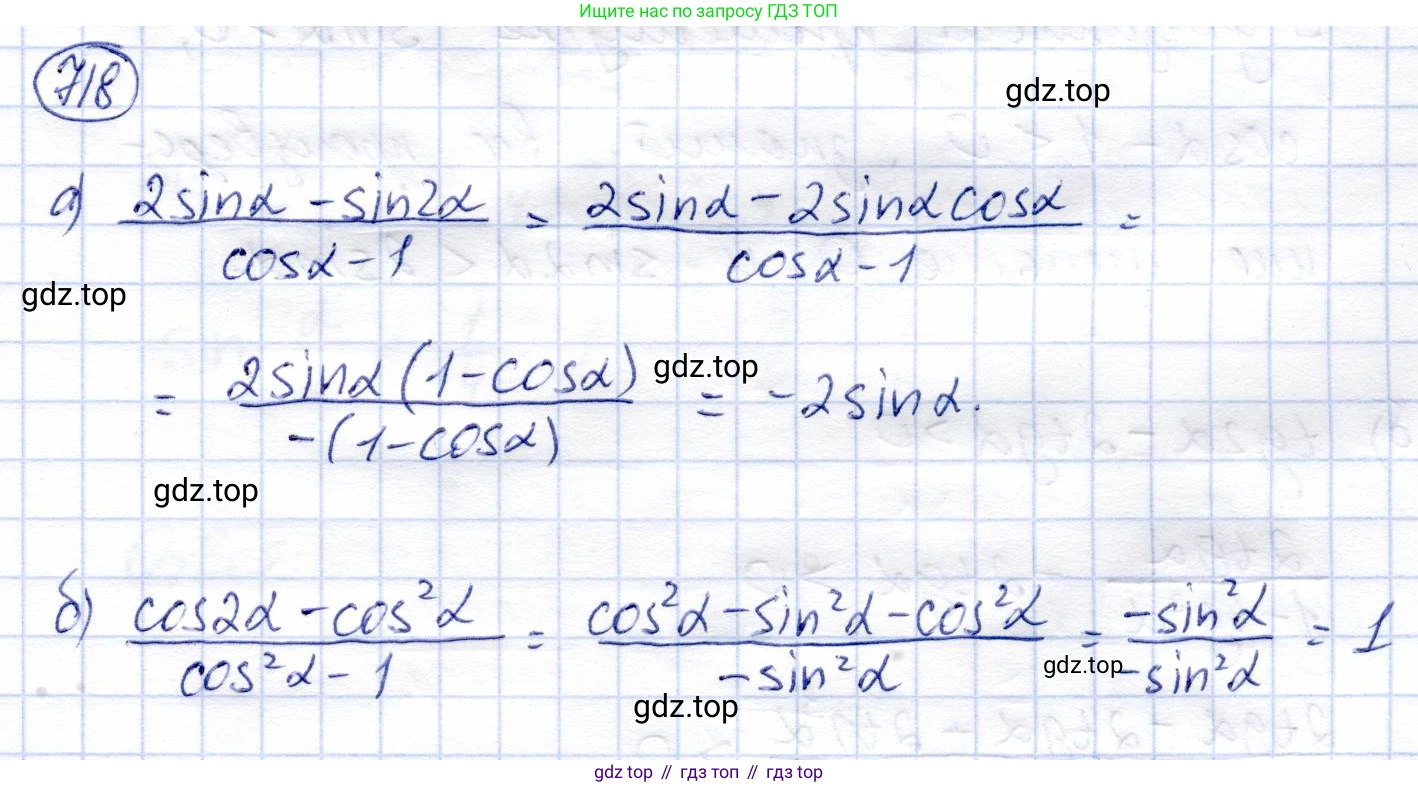 Ищите нас по запросу ГДЗ ТОП
718
gdz.top
а) (2sinα - sin2α)/(cosα - 1) = (2sinα - 2sinα cosα)/(cosα - 1) =
gdz.top
= (2sinα(1 - cosα))/(-(1 - cosα)) = -2sinα.
gdz.top
gdz.top
б) (cos2α - cos²α)/(cos²α - 1) = (cos²α - sin²α - cos²α)/(-sin²α) = (-sin²α)/(-sin²α) = 1
gdz.top
gdz.top
gdz top // гдз топ // гдз top